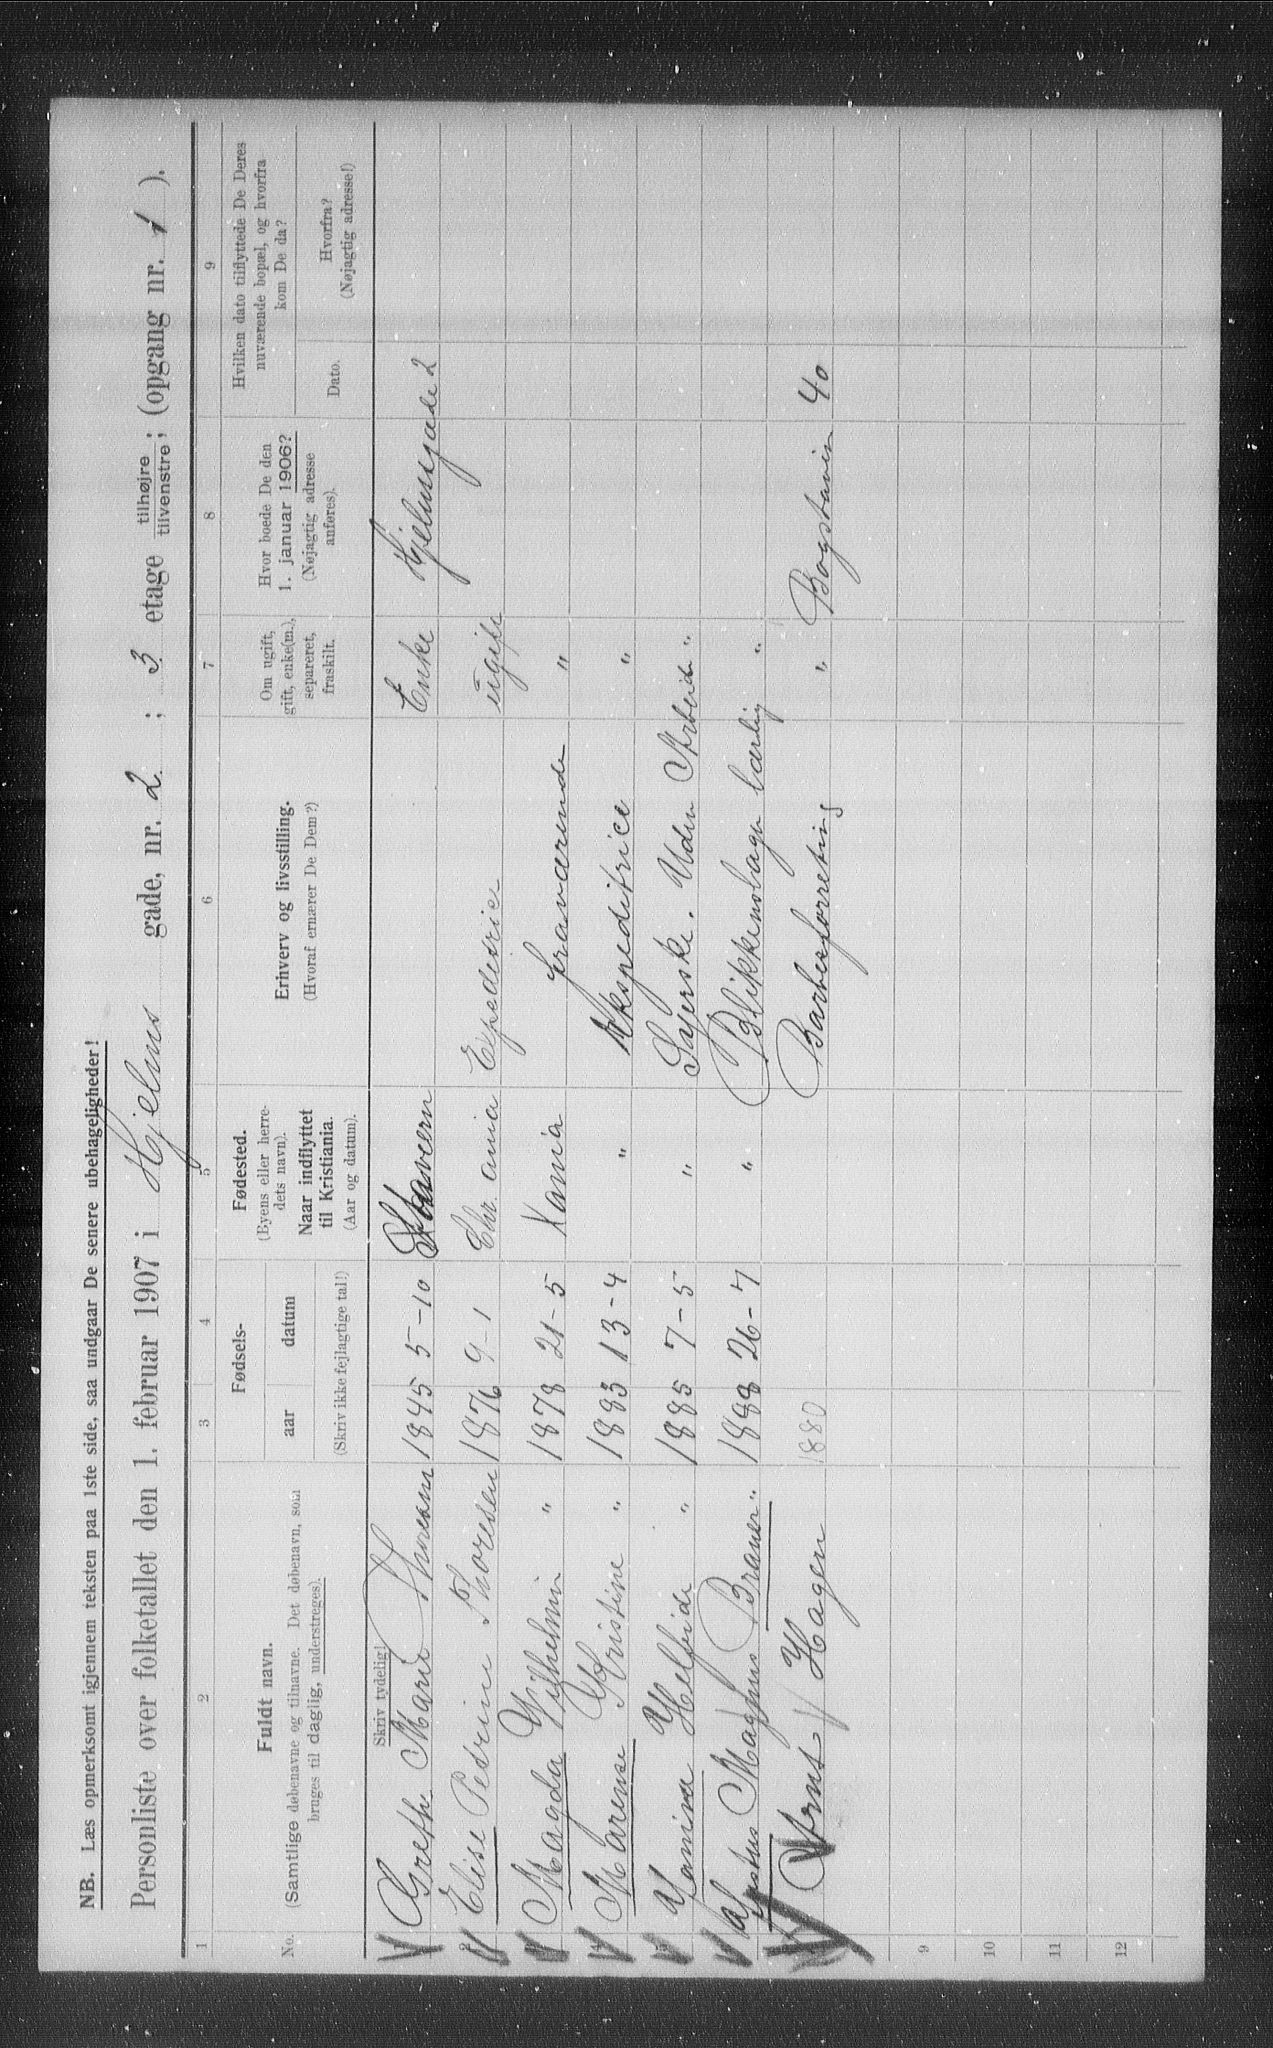 NB. Læs opmerksomt igjennem teksten paa 1ste side, saa undgaar De senere ubehageligheder!
Personliste over folketallet den 1. februar 1907 i Hjelms gade, nr. 2 ; 3 etage tilhøjre tilvenstre ; (opgang nr. 1 ).
1 2 3 4 5 6 7 8 9
No. Fuldt navn. (Samtlige døbenavne og tilnavne. Det døbenavn, som bruges til daglig, understreges).
Fødsels- aar datum (Skriv ikke fejlagtige tal!)
Fødested. (Byens eller herredets navn). Naar indflyttet til Kristiania. (Aar og datum).
Erhverv og livsstilling. (Hvoraf ernærer De Dem?)
Om ugift, gift, enke(m.), separeret, fraskilt.
Hvor boede De den 1. januar 1906? (Nøjagtig adresse anføres).
Hvilken dato tilflyttede De Deres nuværende bopæl, og hvorfra kom De da?
Dato. Hvorfra? (Nøjagtig adresse!)
Skriv tydelig!
Grethe Marie Thoresen 1845 5-10 Enke Hjelmsgade 2
2 Elise Petrine Thoresen 1876 9-1 Chr.ania Expedetrice ugift
Magda Vilhelmin " 1878 21-5 Xania fraværende "
4 Marense Kristine " 1883 13-4 " Ekspeditrice "
Helfride " 1885 7-5 " Syerske. Uden Arbeide "
Magnus " 1888 26-7 " Blikkenslager lærling "
Hagen 1880 Barberforretning " Bogstadvein 40
9
10
11
12